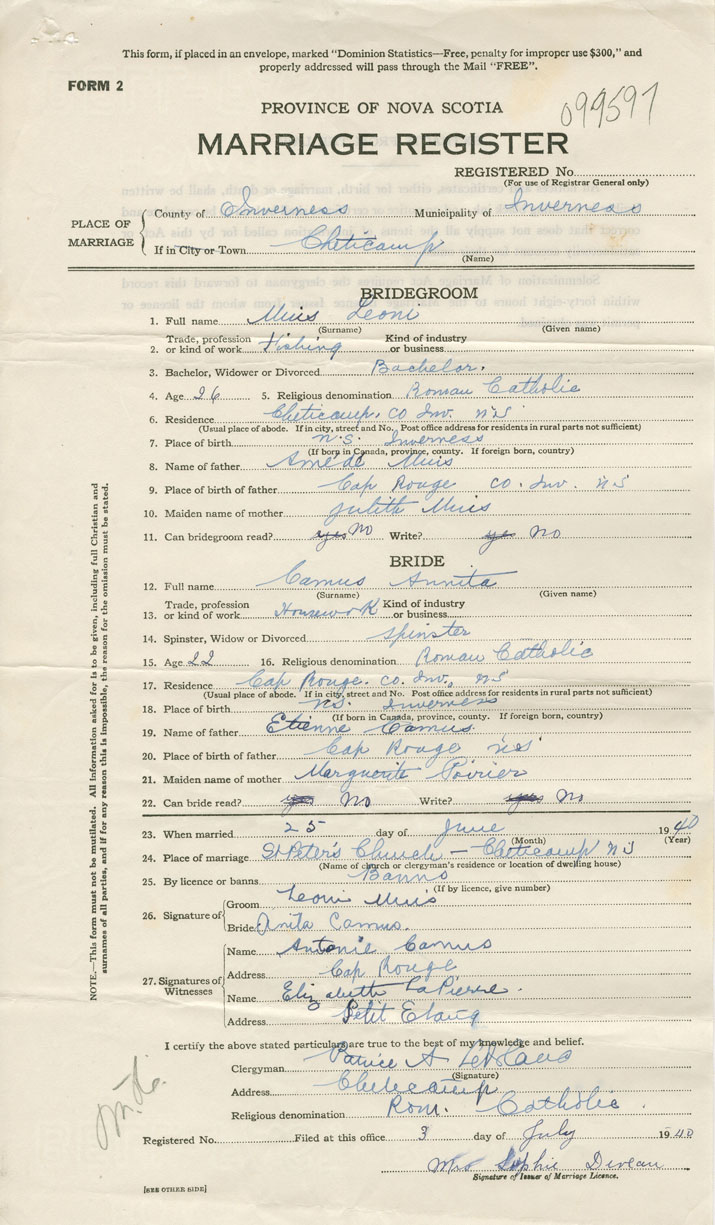 This form, if placed in an envelope, marked "Dominion Statistics—Free, penalty for improper use $300," and
properly addressed will pass through the Mail "FREE".
FORM 2
099597
PROVINCE OF NOVA SCOTIA
MARRIAGE REGISTER
REGISTERED No.
(For use of Registrar General only)
PLACE OF MARRIAGE
County of Inverness Municipality of Inverness
If in City or Town Cheticamp
(Name)
BRIDEGROOM
1. Full name Muis Leoni
(Surname) (Given name)
2. Trade, profession or kind of work Fishing Kind of industry or business
3. Bachelor, Widower or Divorced Bachelor.
4. Age 26 5. Religious denomination Roman Catholic
6. Residence Cheticamp. co Inv. N.S
(Usual place of abode. If in city, street and No. Post office address for residents in rural parts not sufficient)
7. Place of birth N.S. Inverness
(If born in Canada, province, county. If foreign born, country)
8. Name of father Amédé Muis
9. Place of birth of father Cap Rouge co. Inv. N.S
10. Maiden name of mother Judith Muis
11. Can bridegroom read? yes No Write? yes No
BRIDE
12. Full name Camus Annita
(Surname) (Given name)
13. Trade, profession or kind of work Housework Kind of industry or business
14. Spinster, Widow or Divorced Spinster
15. Age 22 16. Religious denomination Roman Catholic
17. Residence Cap Rouge. co. Inv., N.S
(Usual place of abode. If in city, street and No. Post office address for residents in rural parts not sufficient)
18. Place of birth N.S. Inverness
(If born in Canada, province, county. If foreign born, country)
19. Name of father Etienne Camus.
20. Place of birth of father Cap Rouge N.S
21. Maiden name of mother Marguerite Poirier
22. Can bride read? yes No Write? yes No
23. When married 25 day of June 1940
(Month) (Year)
24. Place of marriage St Peter's Church — Cheticamp N.S
(Name of church or clergyman's residence or location of dwelling house)
25. By licence or banns Banns
(If by licence, give number)
26. Signature of
Groom Leoni Muis
Bride Anita Camus.
27. Signatures of Witnesses
Name Antonie Camus
Address Cap Rouge
Name Elizabeth LaPierre.
Address Petit Etang
I certify the above stated particulars are true to the best of my knowledge and belief.
Clergyman Patrice A LeBlanc
(Signature)
Address Cheticamp
Religious denomination Rom. Catholic.
Registered No. Filed at this office 3 day of July 1940
Mrs Sophie Deveau
Signature of Issuer of Marriage Licence.
[SEE OTHER SIDE]
NOTE.—This form must not be mutilated. All information asked for is to be given, including full Christian and
surnames of all parties, and if for any reason this is impossible, the reason for the omission must be stated.